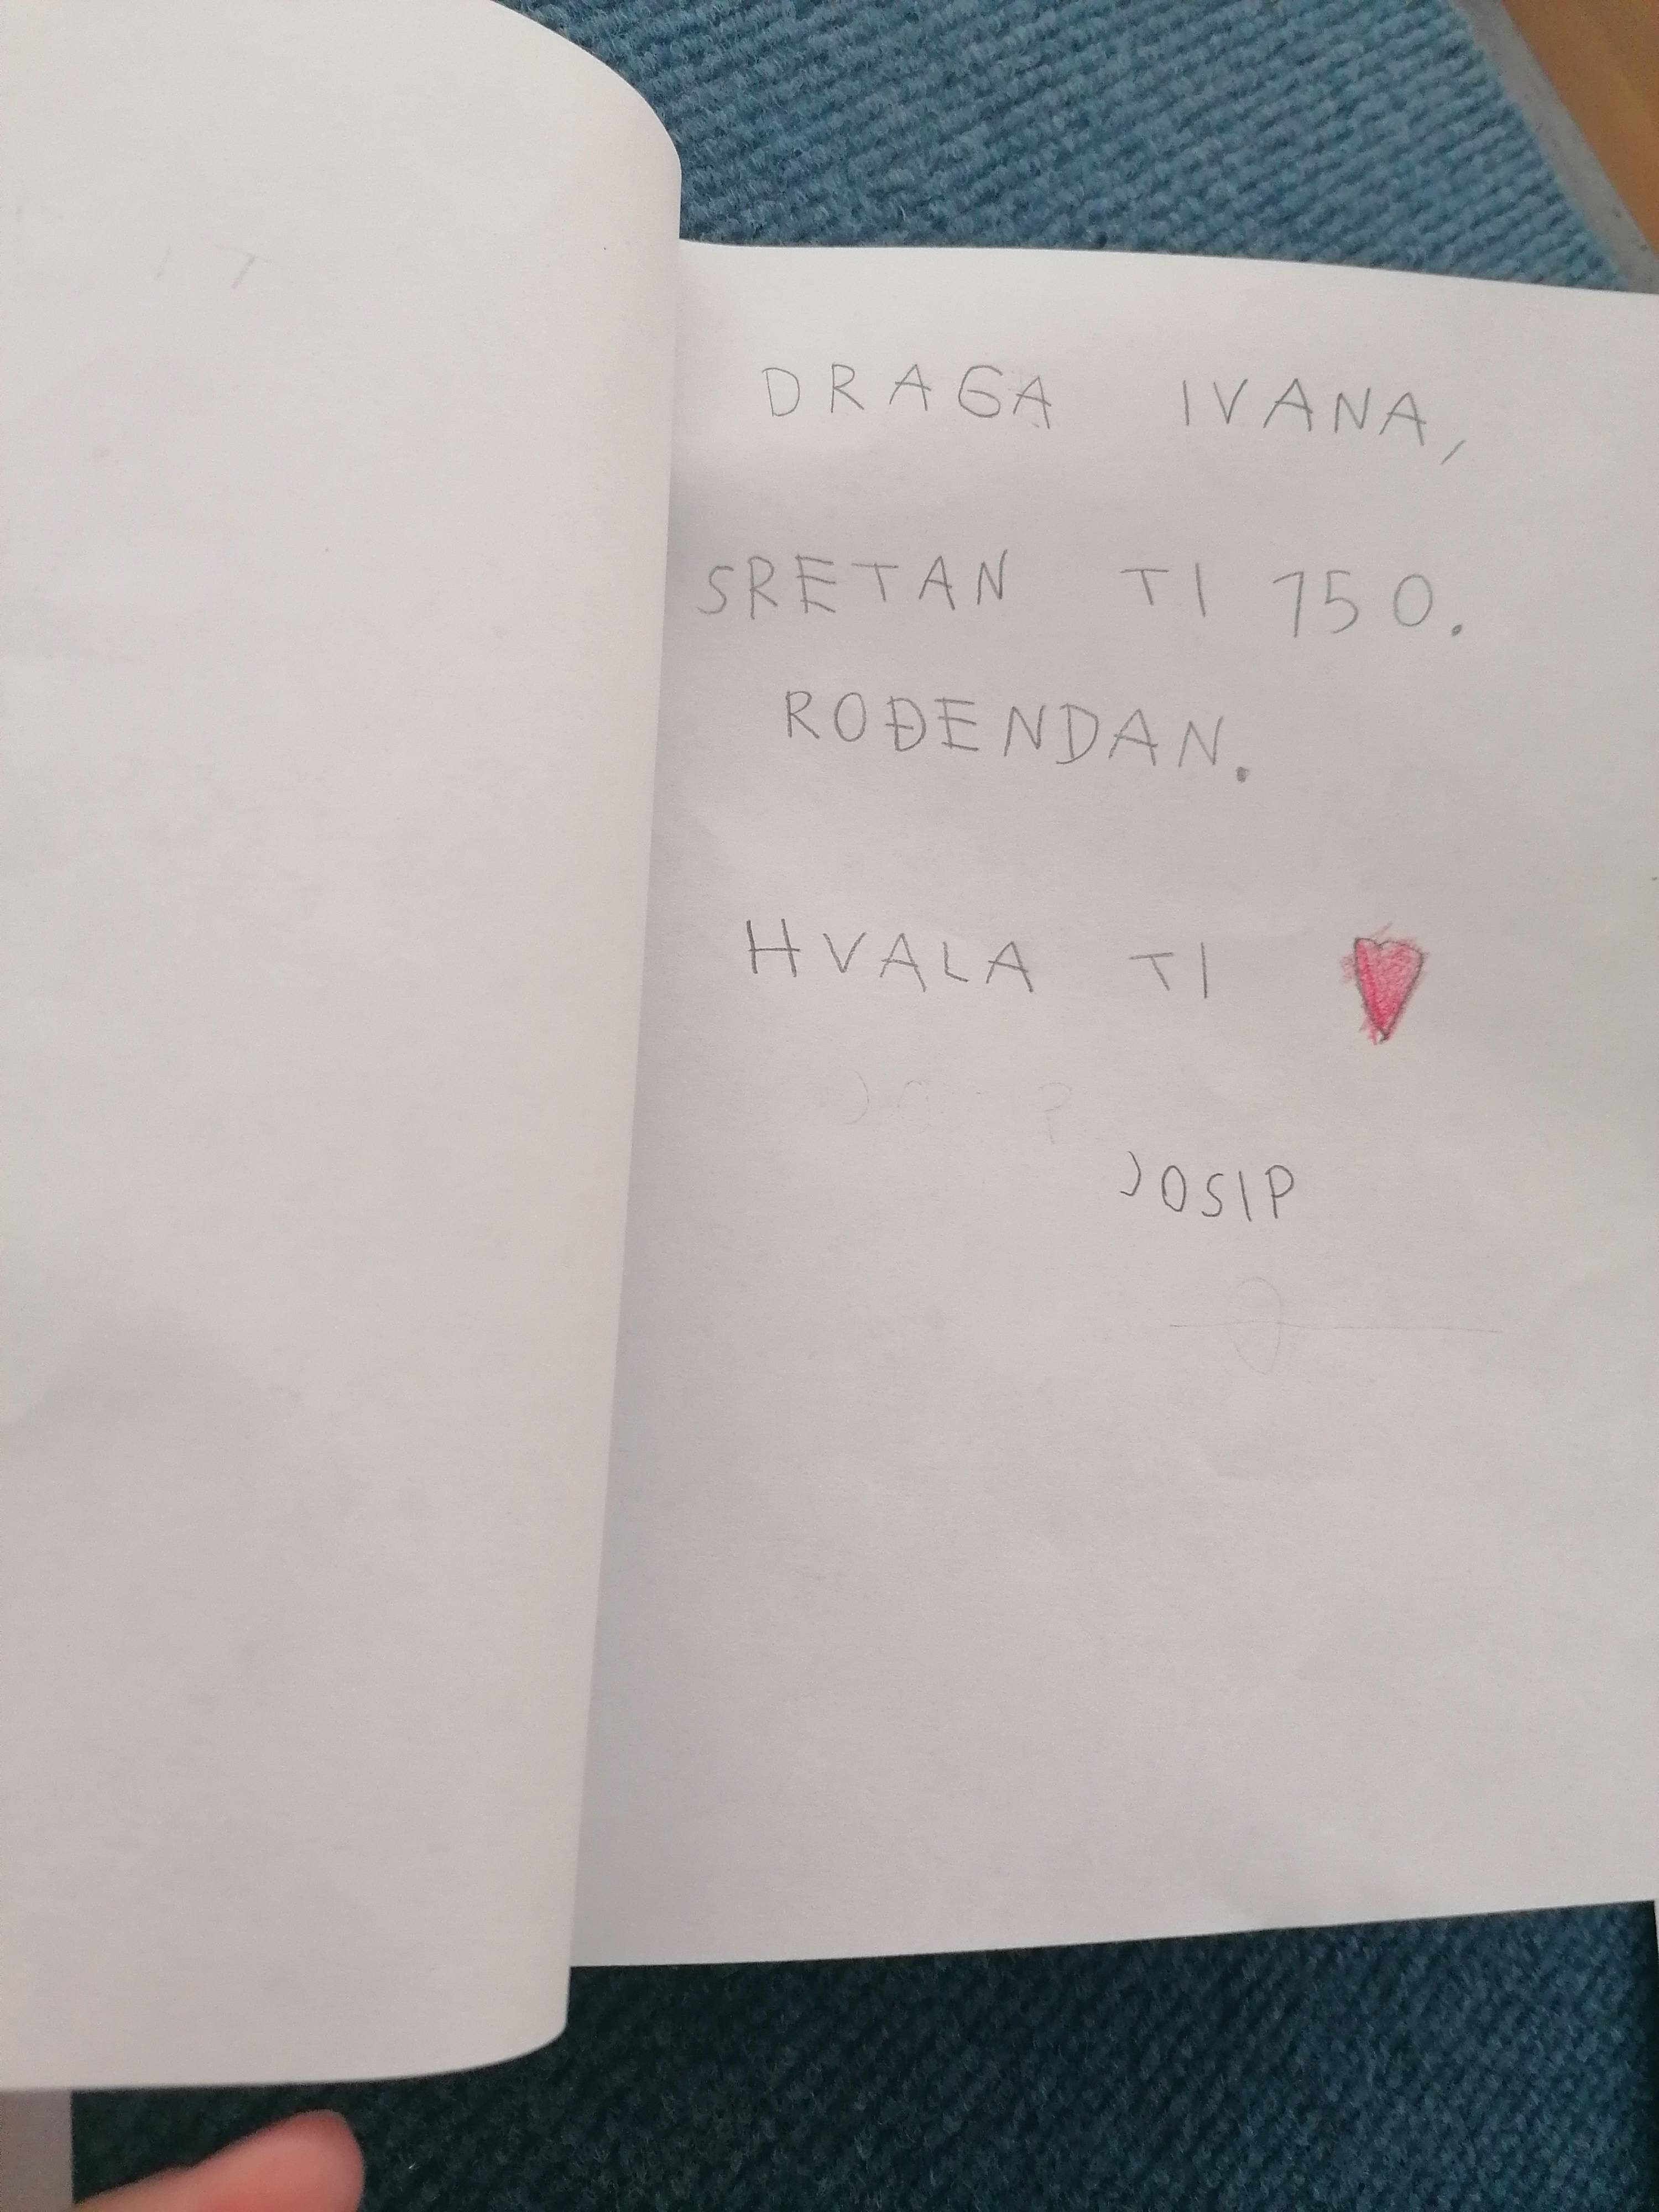 DRAGA IVANA,
SRETAN TI 150.
ROĐENDAN.
HVALA TI
JOSIP